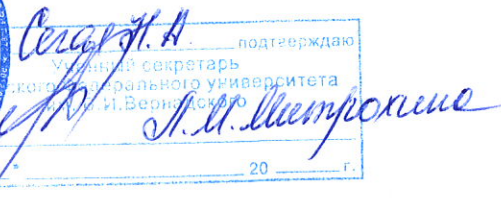 Сегал Н.А. подтверждаю
Ученый секретарь
ского федерального университета
В.И.Вернадского
Л.М. Митрохина
" 20 г.